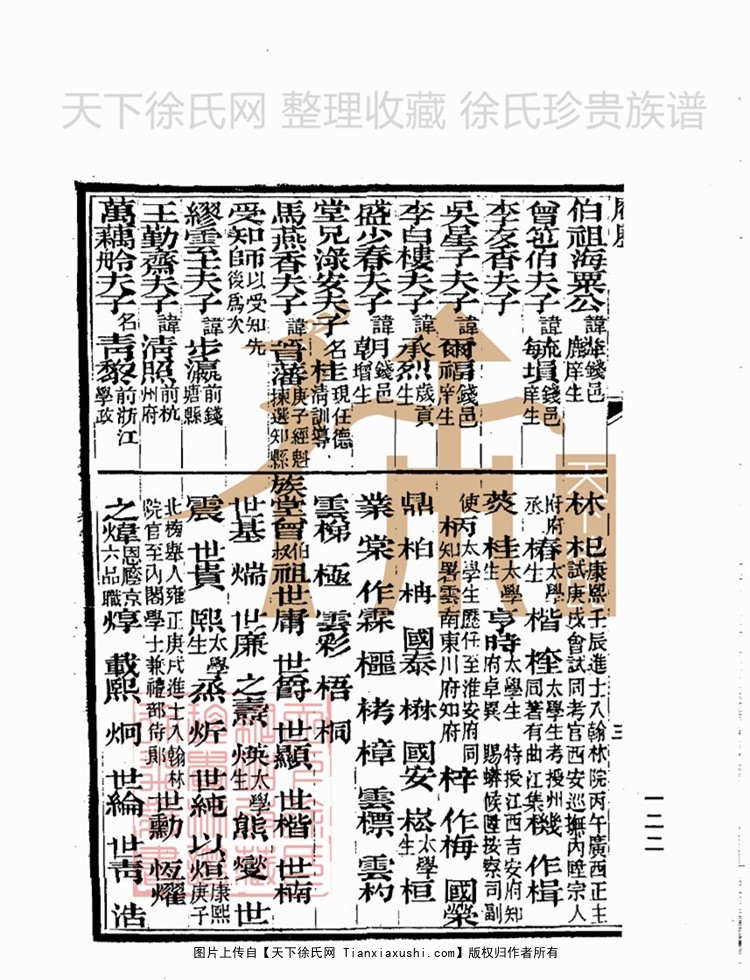 天下徐氏网 整理收藏 徐氏珍贵族谱
伯祖海粟公諱
曾笠伯夫子諱毓瑻錢邑庠生 每埙
李友香夫子
吳星子夫子諱爾福錢邑庠生
李白樓夫子諱承烈歲貢生
盛少春夫子諱朝增錢邑生
堂兄淥安夫子名桂現任德清訓導
馬燕香夫子諱晉藩庚子經魁揀選知縣
受知師以受知先
受知自後爲次
繆雲主夫子諱步瀛前錢塘縣
王勤齋夫子諱清照前杭州府
萬藕舲夫子名青黎前浙江學政
林 杞康熙壬辰進士入翰林院丙午廣西正主
試庚戌會試同考官西安巡撫內陞宗人
府府丞 椿太學生 楷 桎太學生考授州同著有曲江集 機 作楫
焚 桂太學生 亨時太學生 特授江西吉安府知府卓異 賜蟒候陞按察司副
使 柄太學生歷任至淮安府同知署雲南東川府知府 梓 作梅 國榮
鼎 柏 柟 國泰 楙 國安 崧太學生 桓
業 棠 作霖 樞 栲 樟 雲標 雲杓
雲梯 極 雲彩 梧 桐
族堂曾叔伯祖世庸 世爵 世顯 世楷 世楠
世基 煓 世廉 之熹 煐太學生 熊 燮 世
震 世貴 熙太學生 烝 炘 世純 以烜康熙庚子
北榜舉人雍正庚戌進士入翰林
院官至內閣學士兼禮部侍郎 世勳 恆燿
之煒恩廕京六品職 焞 載熙 炯 世綸 世青 浩
三
一二二
图片上传自【天下徐氏网 Tianxiaxushi.com】版权归作者所有